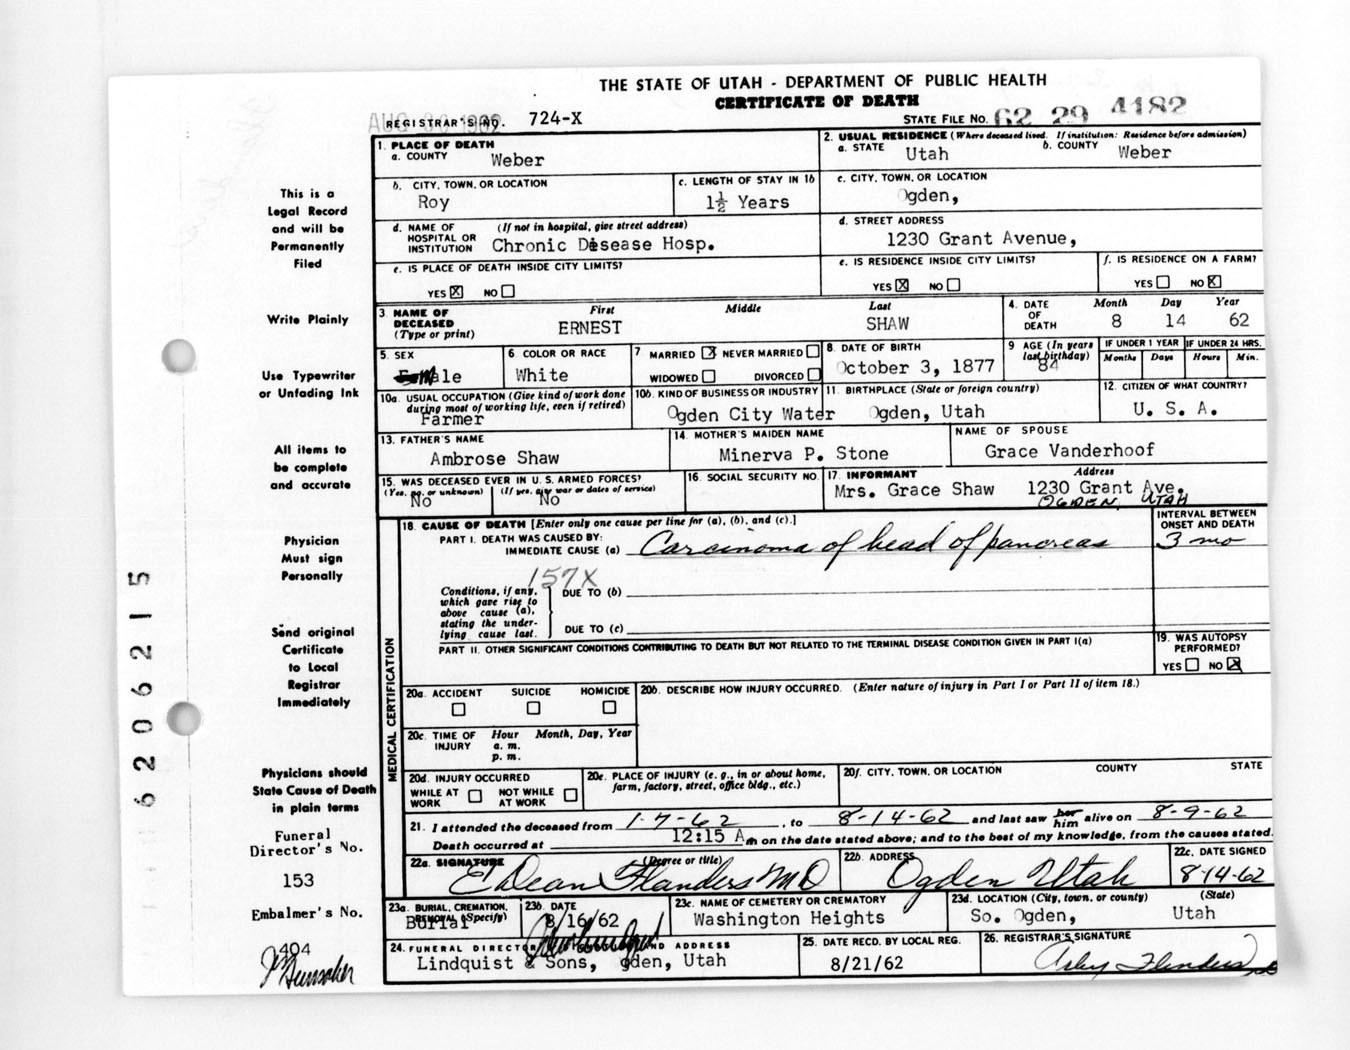 THE STATE OF UTAH - DEPARTMENT OF PUBLIC HEALTH
CERTIFICATE OF DEATH
REGISTRAR'S NO. 724-X STATE FILE NO. 62 29 4182
1. PLACE OF DEATH
a. COUNTY Weber
2. USUAL RESIDENCE (Where deceased lived. If institution: Residence before admission)
a. STATE Utah b. COUNTY Weber
b. CITY, TOWN, OR LOCATION Roy
c. LENGTH OF STAY IN 1b 1½ Years
c. CITY, TOWN, OR LOCATION Ogden,
d. NAME OF HOSPITAL OR INSTITUTION (If not in hospital, give street address) Chronic Disease Hosp.
d. STREET ADDRESS 1230 Grant Avenue,
e. IS PLACE OF DEATH INSIDE CITY LIMITS?
YES ☒ NO ☐
e. IS RESIDENCE INSIDE CITY LIMITS?
YES ☒ NO ☐
f. IS RESIDENCE ON A FARM?
YES ☐ NO ☒
3. NAME OF DECEASED (Type or print) First Middle Last
ERNEST SHAW
4. DATE OF DEATH Month Day Year
8 14 62
5. SEX Male
6 COLOR OR RACE White
7 MARRIED ☒ NEVER MARRIED ☐
WIDOWED ☐ DIVORCED ☐
8. DATE OF BIRTH October 3, 1877
9 AGE (In years last birthday) 84
IF UNDER 1 YEAR Months Days
IF UNDER 24 HRS. Hours Min.
10a. USUAL OCCUPATION (Give kind of work done during most of working life, even if retired) Farmer
10b. KIND OF BUSINESS OR INDUSTRY Ogden City Water
11. BIRTHPLACE (State or foreign country) Ogden, Utah
12. CITIZEN OF WHAT COUNTRY? U. S. A.
13. FATHER'S NAME Ambrose Shaw
14. MOTHER'S MAIDEN NAME Minerva P. Stone
NAME OF SPOUSE Grace Vanderhoof
15. WAS DECEASED EVER IN U. S. ARMED FORCES?
(Yes, no, or unknown) No (If yes, give war or dates of service) No
16. SOCIAL SECURITY NO.
17. INFORMANT Address
Mrs. Grace Shaw 1230 Grant Ave.
OGDEN, UTAH
18. CAUSE OF DEATH [Enter only one cause per line for (a), (b), and (c).]
INTERVAL BETWEEN ONSET AND DEATH
PART I. DEATH WAS CAUSED BY:
IMMEDIATE CAUSE (a) Carcinoma of head of pancreas 3 mo
157X
Conditions, if any, which gave rise to above cause (a), stating the underlying cause last.
DUE TO (b)
DUE TO (c)
PART II. OTHER SIGNIFICANT CONDITIONS CONTRIBUTING TO DEATH BUT NOT RELATED TO THE TERMINAL DISEASE CONDITION GIVEN IN PART I(a)
19. WAS AUTOPSY PERFORMED?
YES ☐ NO ☒
MEDICAL CERTIFICATION
20a. ACCIDENT SUICIDE HOMICIDE
☐ ☐ ☐
20b. DESCRIBE HOW INJURY OCCURRED. (Enter nature of injury in Part I or Part II of item 18.)
20c. TIME OF INJURY Hour Month, Day, Year
a. m.
p. m.
20d. INJURY OCCURRED
WHILE AT WORK ☐ NOT WHILE AT WORK ☐
20e. PLACE OF INJURY (e. g., in or about home, farm, factory, street, office bldg., etc.)
20f. CITY, TOWN, OR LOCATION COUNTY STATE
21. I attended the deceased from 1-7-62, to 8-14-62 and last saw her him alive on 8-9-62
Death occurred at 12:15 A.m on the date stated above; and to the best of my knowledge, from the causes stated.
22a. SIGNATURE (Degree or title) E Dean Flanders MD
22b. ADDRESS Ogden Utah
22c. DATE SIGNED 8-14-62
23a. BURIAL, CREMATION, REMOVAL (Specify) Burial
23b. DATE 8/16/62
23c. NAME OF CEMETERY OR CREMATORY Washington Heights
23d. LOCATION (City, town, or county) (State)
So. Ogden, Utah
24. FUNERAL DIRECTOR AND ADDRESS
Lindquist & Sons, gden, Utah
25. DATE RECD. BY LOCAL REG. 8/21/62
26. REGISTRAR'S SIGNATURE
This is a
Legal Record
and will be
Permanently
Filed
Write Plainly
Use Typewriter
or Unfading Ink
All items to
be complete
and accurate
Physician
Must sign
Personally
Send original
Certificate
to Local
Registrar
Immediately
Physicians should
State Cause of Death
in plain terms
Funeral
Director's No.
153
Embalmer's No.
404
6206215